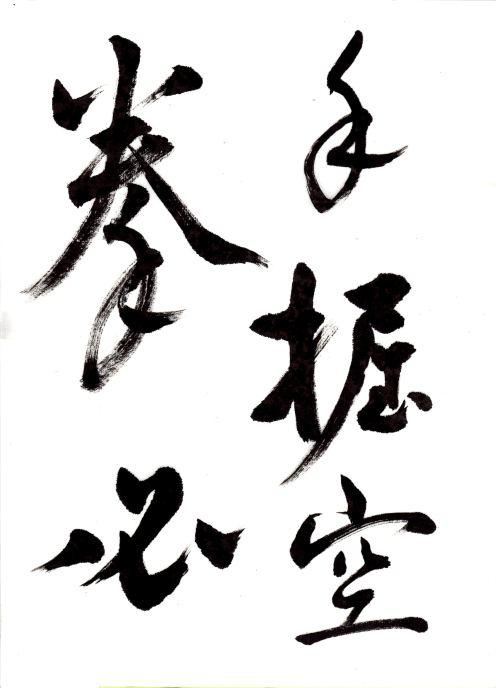 手握空
拳必